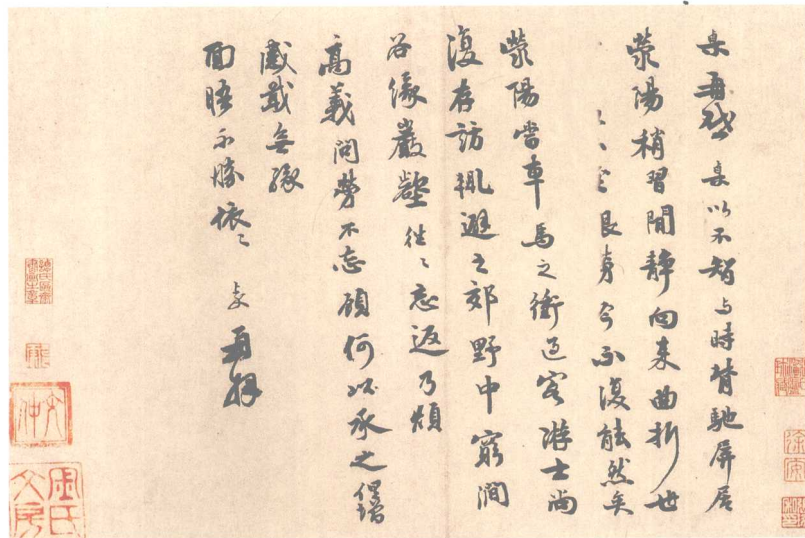 再啓 以不智与時背馳屏居
滎陽稍習閒静向来曲折世
艮身今不復能然矣
滎陽當車馬之衝過客游士尚
復存訪輒避之郊野中窮澗
谷緣巖壑往〻忘返乃煩
高義問勞不忘顧何以承之增
感戢無緣
面晤不勝依〻 再拜